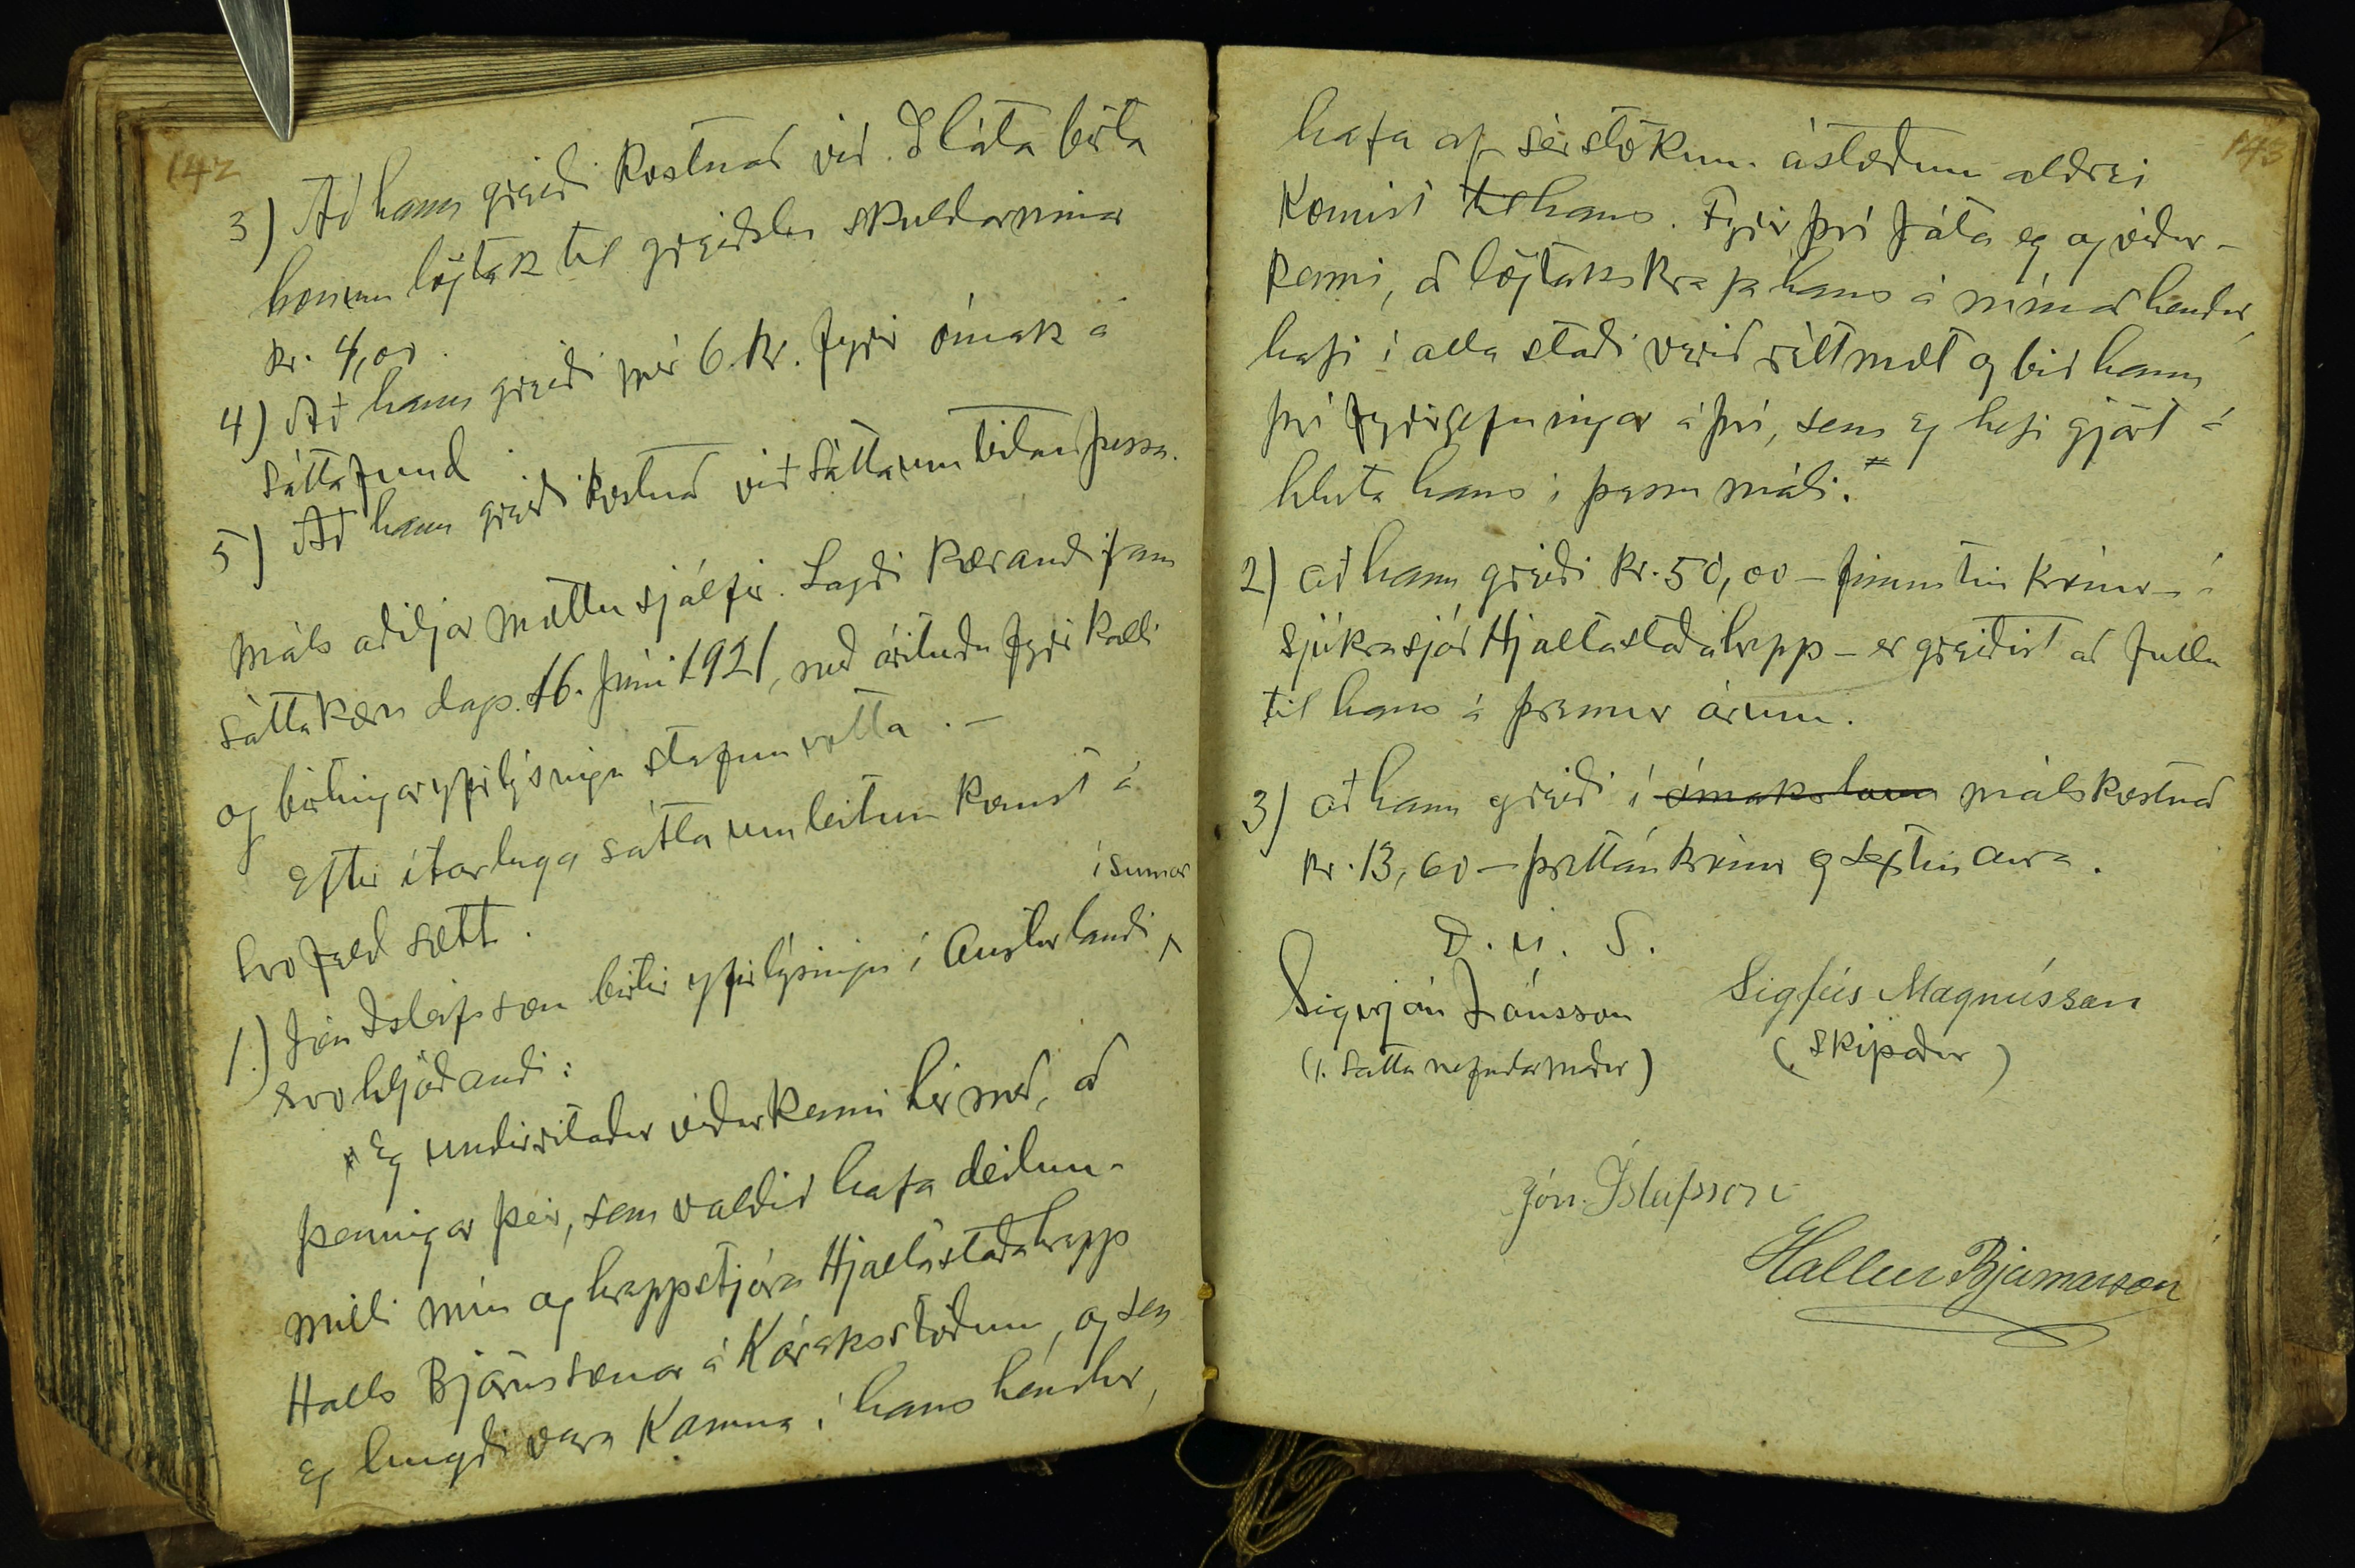 142
3) Að hann greiði kostnað við að láta birta
honum lögtak til greiðslu skuldarinnar
kr. 4,00.
4) Að hann greiði mér 6. kr. fyrir ómak á
sáttafund
5) Að hann greiði kostnað við sáttaumleitan þessa.
Máls aðiljar mættu sjálfir. Lagði kærandi fram
sáttakæru dags. 16. júní 1921, með árituðu fyrirkalli
og birtingaryfirlýsingu stefnuvotta. -
Eftir ítarlega sáttaumleitun komst á
svofeld sætt.
í sumar
1.) Jón Ísleifsson birtir yfirlýsingu í Austurlandi,
svohljóðandi:
"Eg undirritaður viðurkenni hér með, að
peningar þeir, sem valdið hafa deilum-
milli mín og hreppstjóra Hjaltastaðahrepp
Halls Björnssonar á Kóreksstöðum, og sem
eg hugði vera komna í hans hendur,
143
hafa af sérstökum ástæðum aldrei
komist til hans. Fyrir því játa eg og viður-
kenni, að lögtakskrafa hans á mínar hendur,
hafi í alla staði verið réttmæt og bið hann
því fyrirgefningar á því, sem eg hefi gjört á
hluta hans í þessu máli."
2) að hann greiði kr. 50,00 - fimmtíu krónur - í
sjúkrasjóð Hjaltastaðahrepp - er greiðist að fullu
til hans á þremur árum.
3) að hann greiði í ómakslaun málskostnað
kr. 13,60 - þrettán krónur og sextíu aura.
D. U. S.
Sigurjón Jónsson Sigfús Magnússon
(1. sáttanefndarmaður) (skipaður)
Jón Ísleifsson
Hallur Björnsson